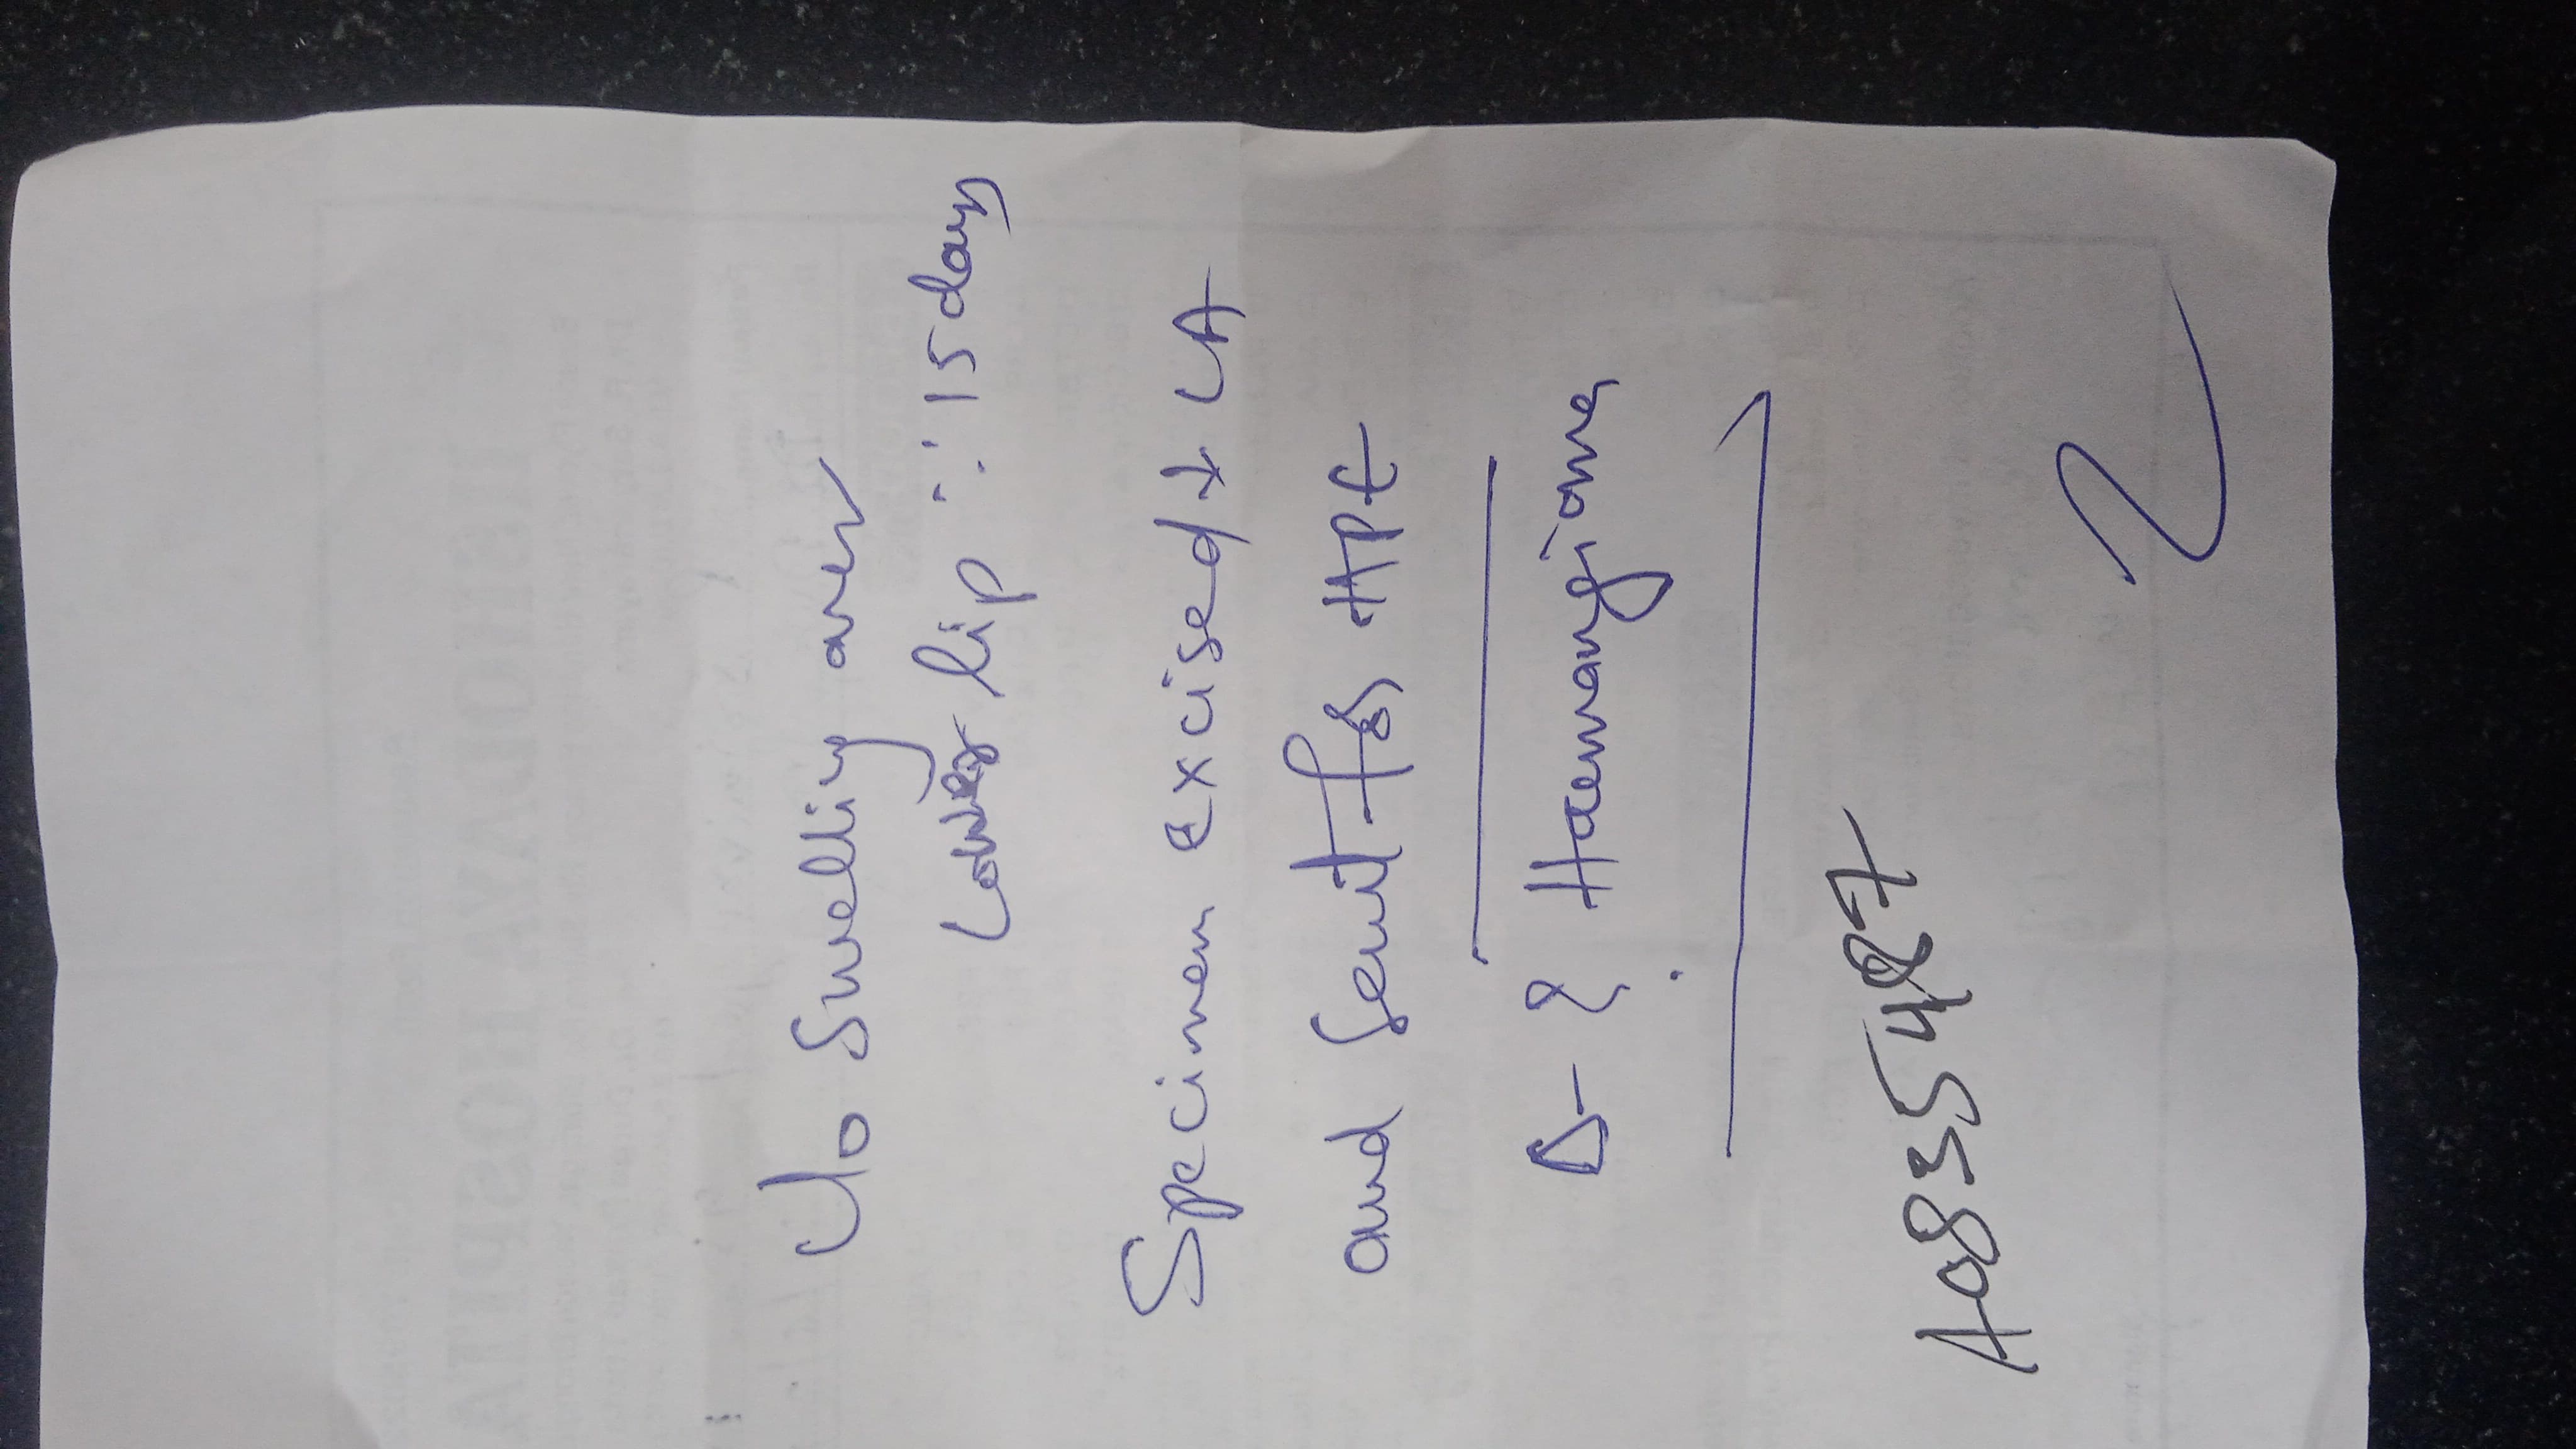 C/o Swelling over
Lower lip ∵ 15 days
Specimen excised ↓ LA
and Sent for HPE
D- ? Haemangioma